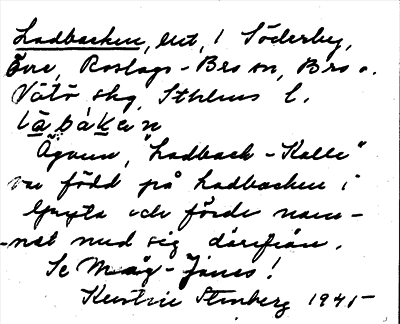 Ladbacken, lht, i Söderby,
Övre, Roslags-Bro sn, Bro o.
Vätö skg, Sthlms l.
làbákan
Ägaren, "Ladback-Kalle"
var född på Ladbacken i
Gryta och förde nam-
-net med sig därifrån.
Se Måg-Jones!
Kerstin Stenberg 1945